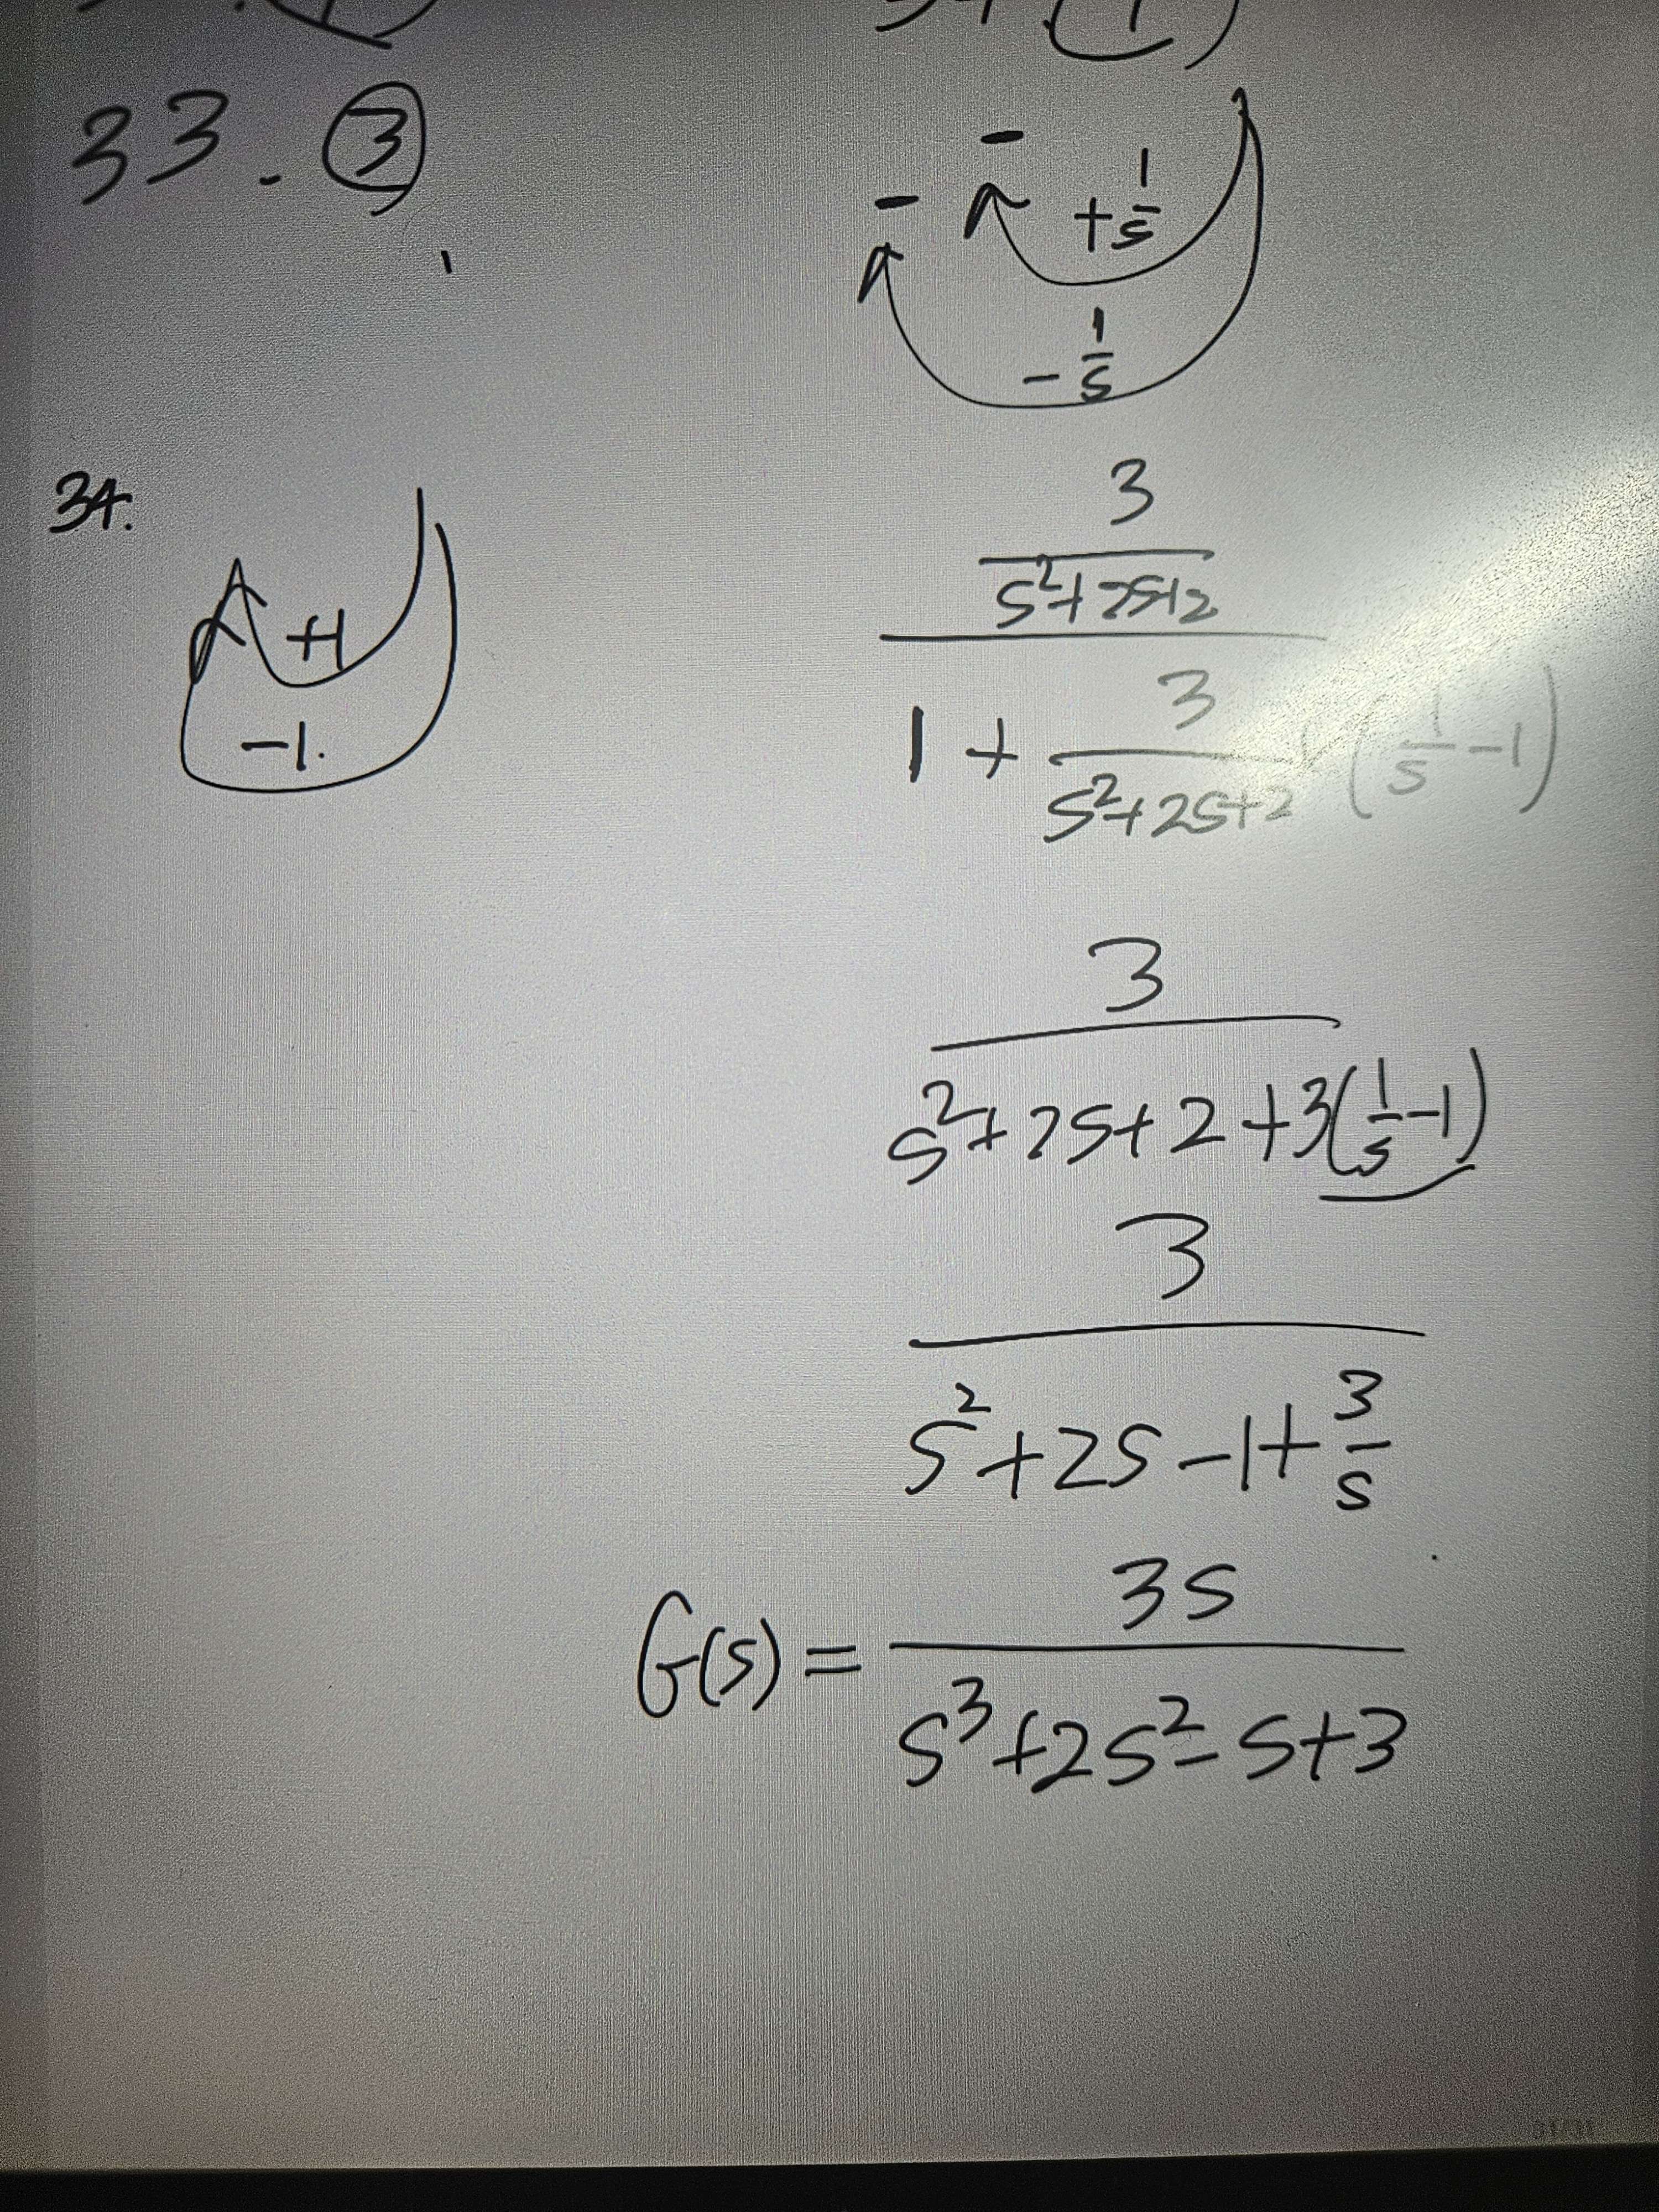 33. ③
-
- + 1/s
- 1/s
34.
+1
-1.
3
s²+2s+2
1 + 3/(s²+2s+2) (1/s - 1)
3
s²+2s+2+3(1/s-1)
3
s²+2s-1+3/s
G(s) = 3s
s³+2s²-s+3